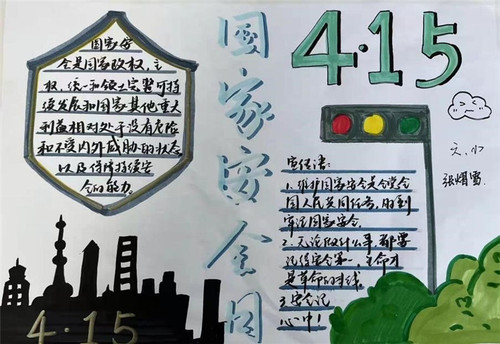 国家安
全是国家政权、主
权、统一和领土完整可持
续发展和国家其他重大
利益相对处于没有危险
和不受内外威胁的状态
以及保障持续安
全的能力。
国家安全日
4·15
宣传语:
1.维护国家安全是全党全
国人民共同任务,时刻
牢记国家安全。
2.无论做什么事都要
记得安全第一,生命才
是革命的本钱。
3.安全记
心中!
文小
4·15